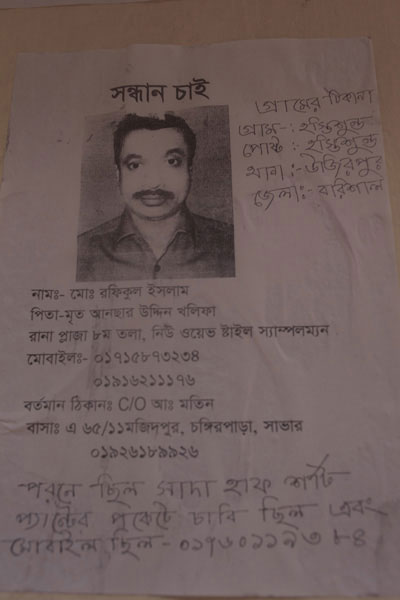 সন্ধান চাই
গ্রামের ঠিকানা
গ্রাম-: হস্তিশুন্ড
পোষ্ট : হস্তিশুন্ড
থানা :- উজিরপুর
জেলা:- বরিশাল
নামঃ- মোঃ রফিকুল ইসলাম
পিতা-মৃত আনছার উদ্দিন খলিফা
রানা প্লাজা ৮ম তলা, নিউ ওয়েভ ষ্টাইল স্যাম্পলম্যান
মোবাইলঃ- ০১৭১৫৮৭৩২৩৪
০১৯১৬২১১১৭৬
বর্তমান ঠিকানঃ C/O আঃ মতিন
বাসাঃ এ ৬৫/১১মজিদপুর, চঙ্গিরপাড়া, সাভার
০১৯২৬১৮৯৯২৬
পরনে ছিল সাদা হাফ শার্ট
প্যান্টের পকেটে চাবি ছিল এবং
মোবাইল ছিল-